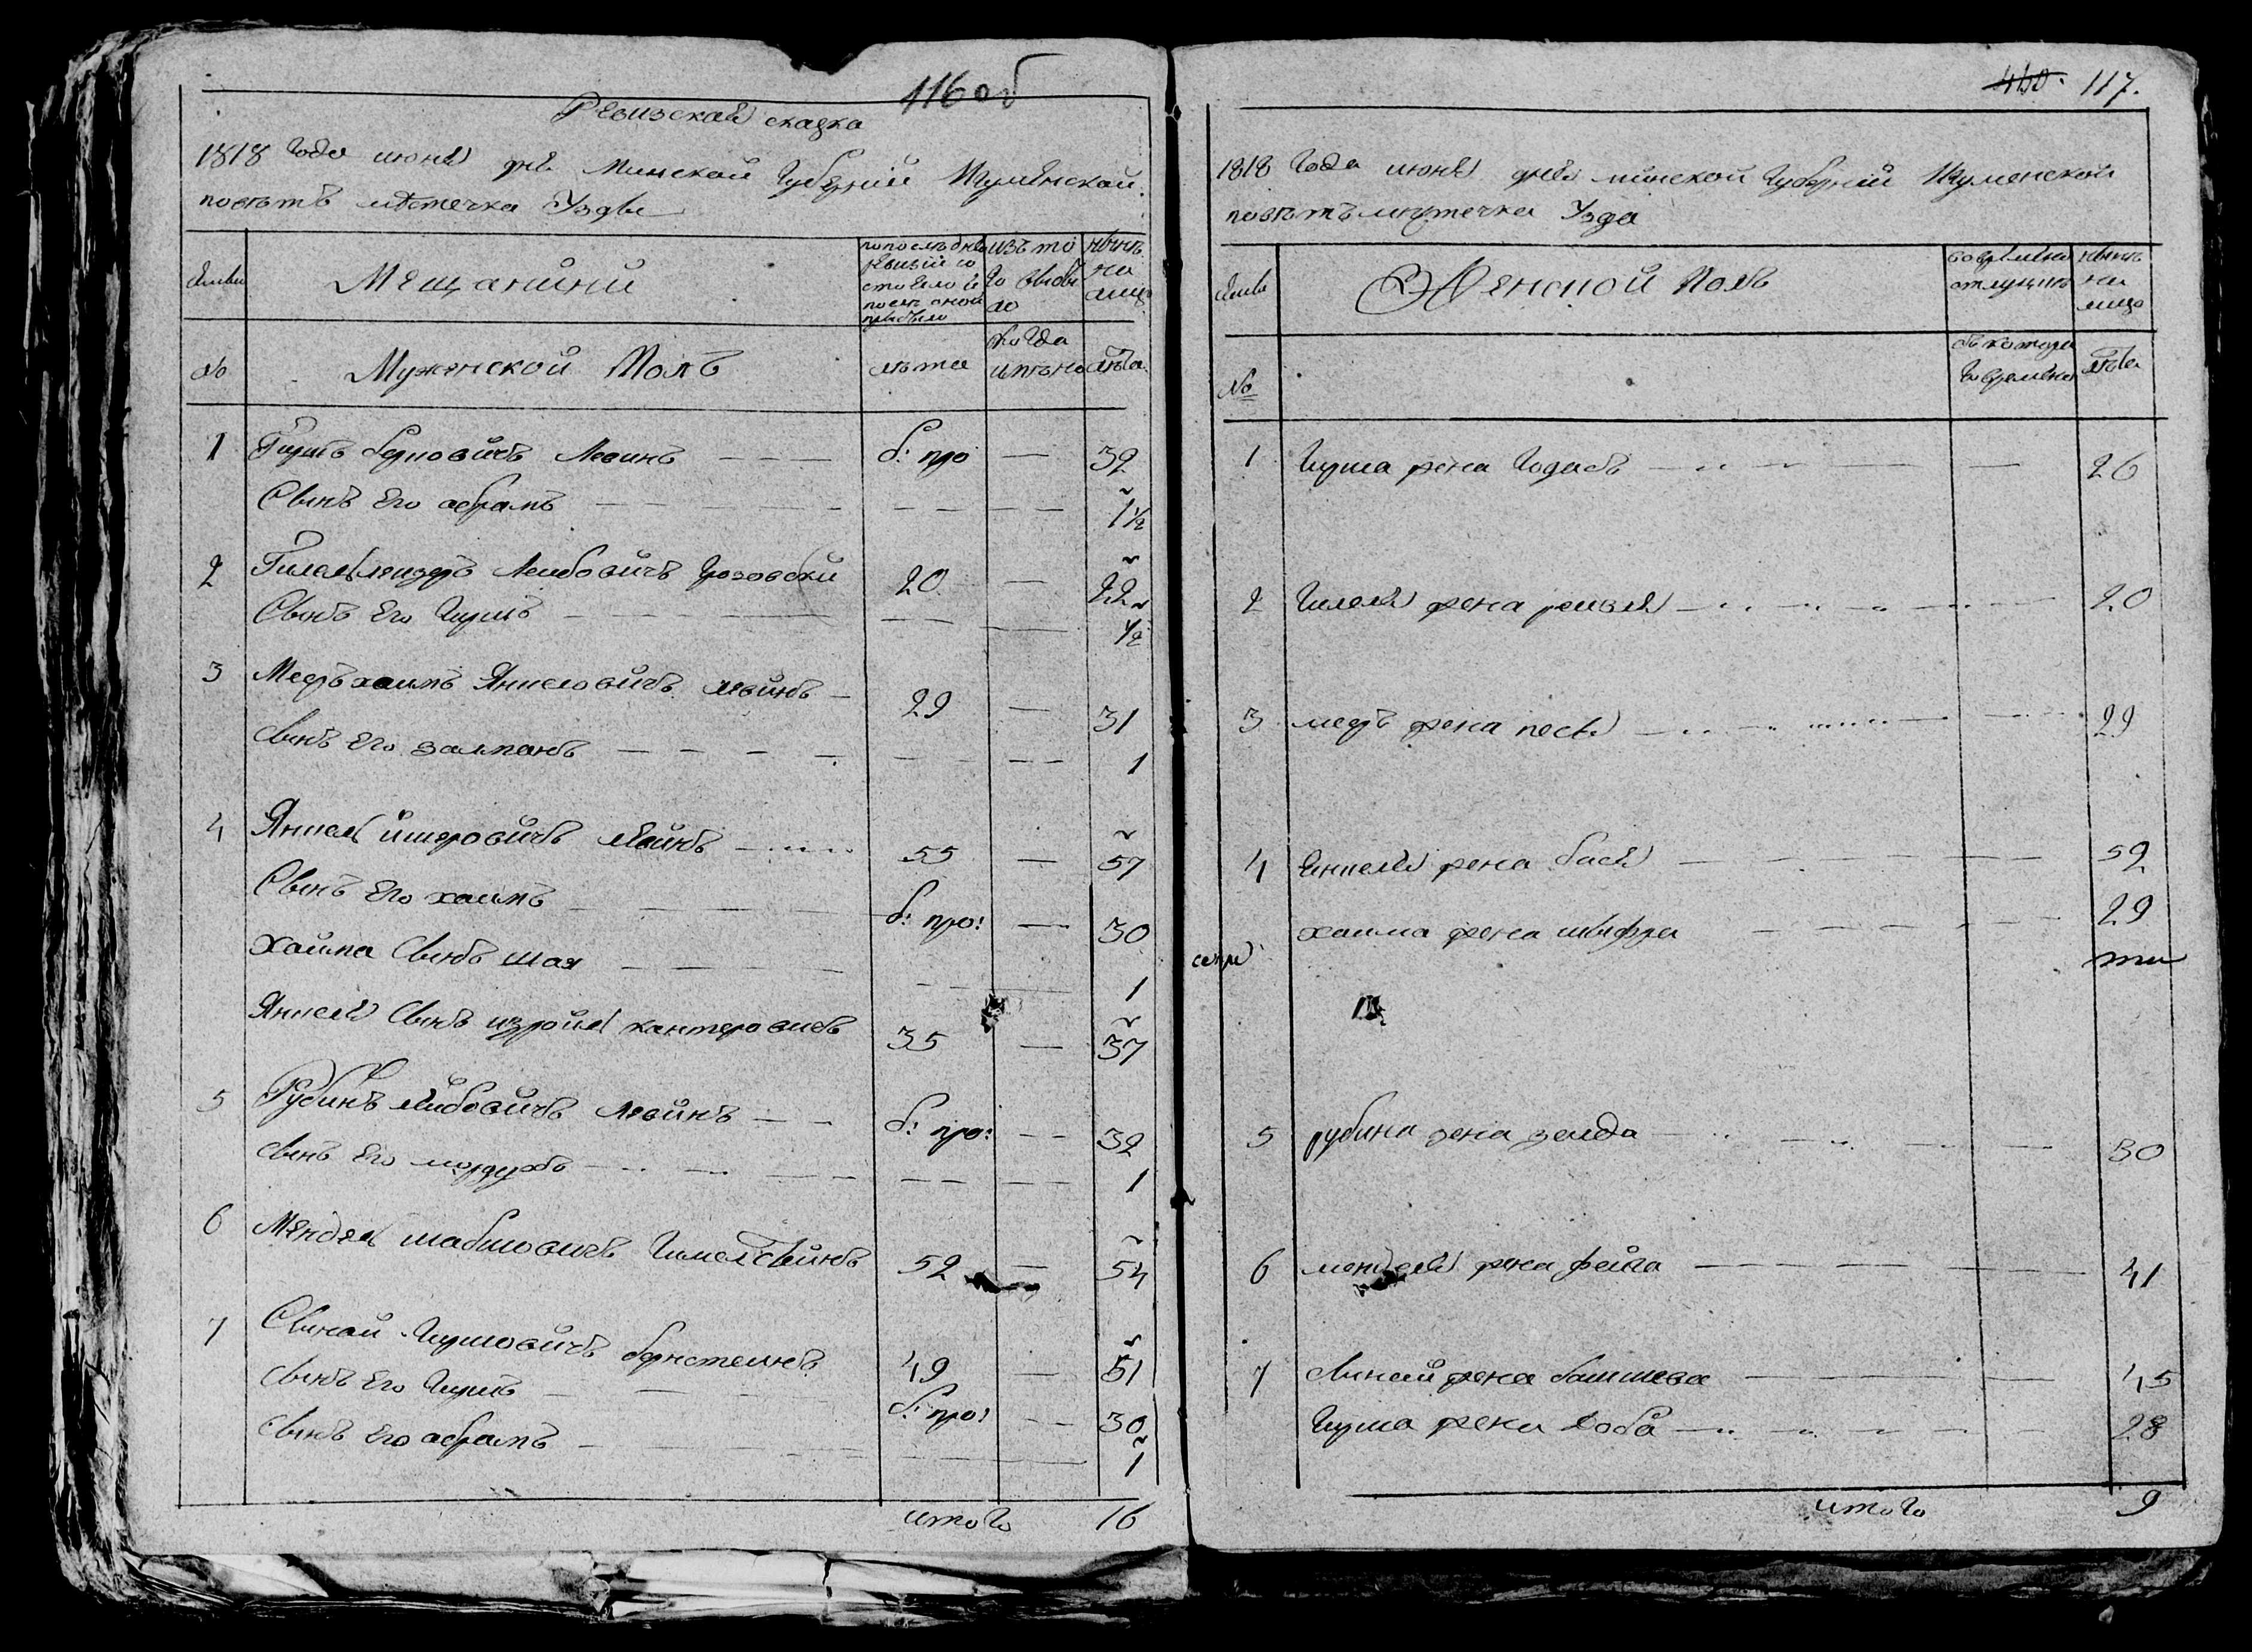 116 об
Ревизская сказка
1818 Года июня дня Минской Губерний Игуменской
повѣтъ мѣстечка Узды
Мещанини
по послѣдней ревизій состояло и после оной прибыло
изъ того выбы ло
нынѣ на лицо
№
Мужеской Полъ
лѣта
когда имянно
лѣта
1 Гиршъ берковичъ Левинъ — — — б: про — 32
Сынъ Его абрамъ — — — 1½
2 Гилель Лейбовичъ 20 — 22
Сынъ Его Гиршъ — — — ½
3 Мееръ хаимъ Янкеловичъ левинъ — 29 — 31
Сынъ Его залманъ — — — 1
4 Янкель левинъ 55 — 57
Сынъ Его хаимъ — б: про: — 30
Хаима Сынъ шая — — 1
Янкеля Сынъ изройль канторовичъ 35 — 37
5 Рубинъ лейбовичъ левинъ — — б: про: — — 32
Сынъ Его мордухъ — — — 1
6 Мендель шабшовичъ 52 — 54
7 Гиршовичъ бернстеинъ 49 — 51
Сынъ Его Гиршъ — б: про: — — 30
Сынъ Его абрамъ — — — 1
итого 16
460. 117.
1818 Года июня дня минской Губерній Игуменской
повѣтъ мистечка Узда
Женской Полъ
во временной отлучке
нынѣ на лицо
№
съ котораго времени
лѣта
1 Гирша жена Годасъ — — — 26
2 Гилеля жена рейзля — — — 20
3 меера жена песя — — — 29
4 янкеля жена бася — — — 52
хаима жена шифра — — — 29
5 рубина жена зелда — — — 30
6 менделя жена фейга — — — 41
7 жена батшева — — — 45
Гирша жена доба — — — 28
итого 9